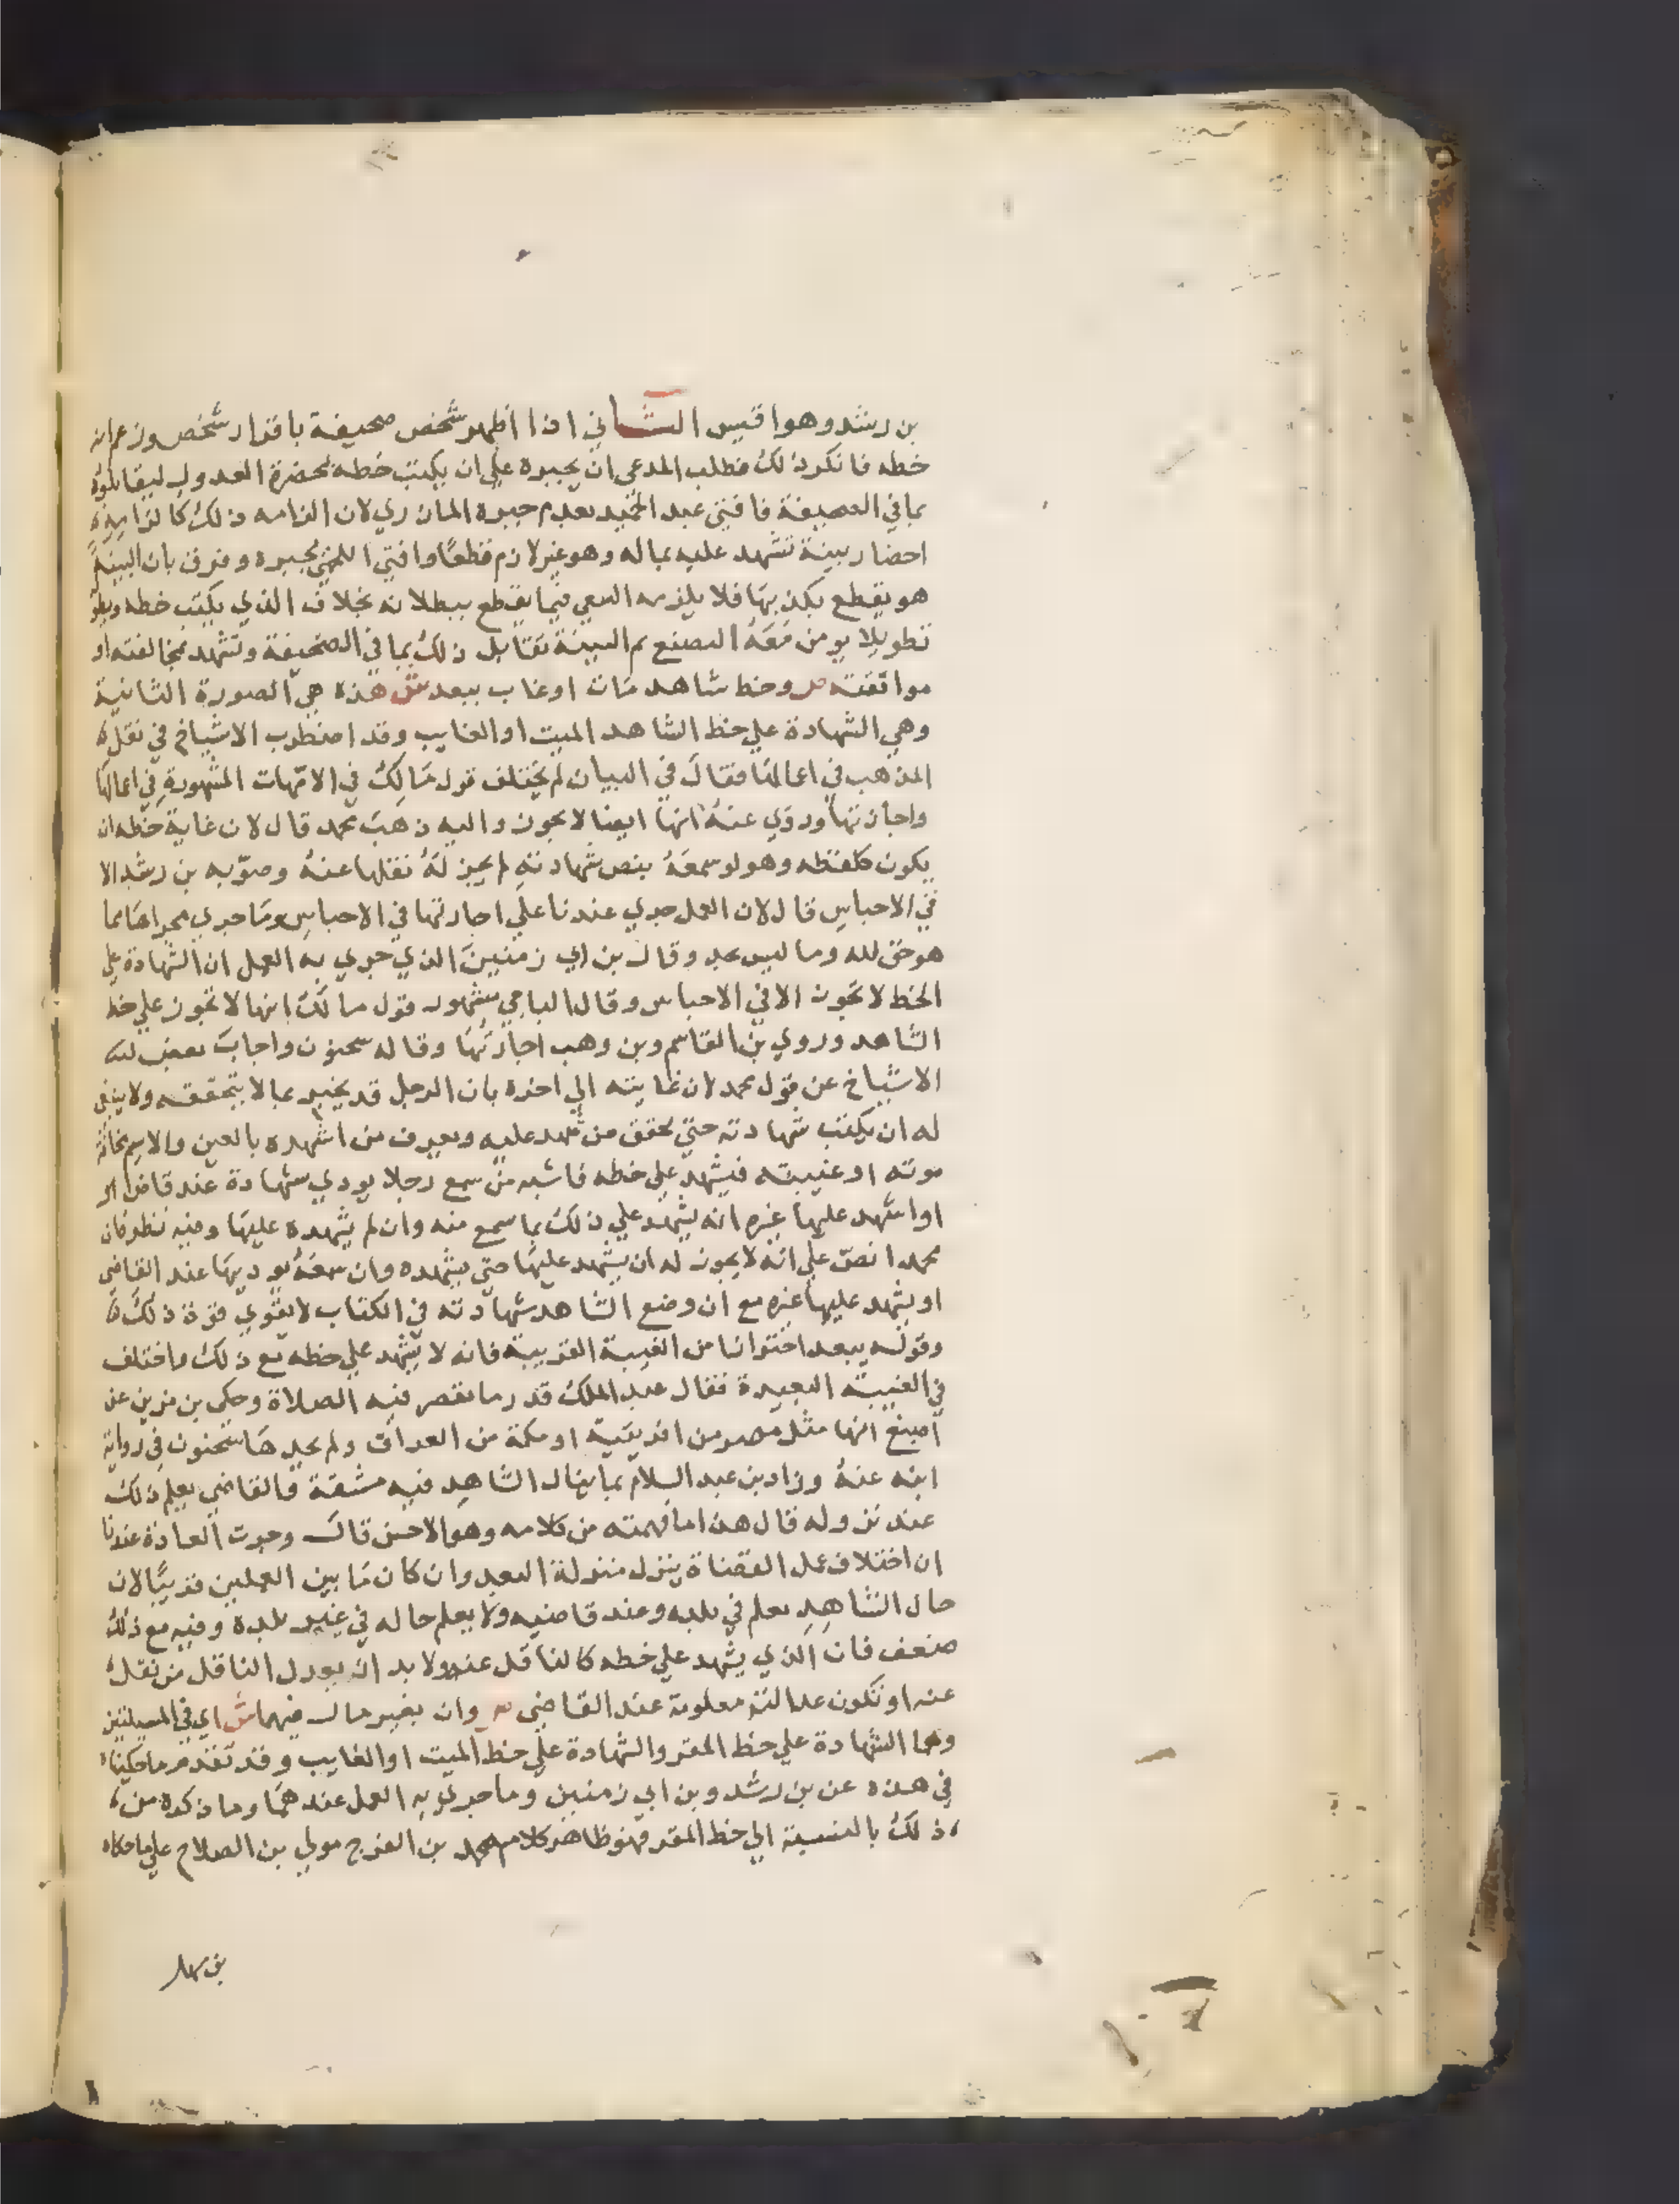 بن رشد وهو اقيس الثاني اذا اظهر شخص صحيفة باقرار شخص وزعم انه
خطه فانكر ذلك فطلب المدعي ان يجبره علي ان يكتب خطه بحضرة العدول ليقابلوه
بما في الصحيفة فافتي عبد الحميد بعدم جبره المازري لان الزامه ذلك كالزامه
احضار بينة تشهد عليه بماله وهو غير لازم قطعا وافتي اللخمي بجبره وفرق بان البينة
هو يقطع بكذبها فلا يلزمه السعي فيما يقطع ببطلانه بخلاف الذي يكتب خطه ويطول
تطويلا يومن مَعَهُ التصنع ثم البينة تقابل ذلك بما في الصحيفة وتشهد بمخالفته او
موافقته ص وخط شاهد مات او غاب ببعد ش هذه هي الصورة الثانية
وهي الشهادة علي خط الشاهد الميت او الغايب وقد اضطرب الاشياخ في نقل
المذهب في اعمالها فقال في البيان لم يختلف قول مَالِكٌ في الامّهات المشهورةِ في اعمالها
واجازتها وروي عنهُ انها ايضا لا تجوز واليه ذهب محمد قال لان غاية خطه ان
يكون كلفظه وهو لو سمعَهُ ينص شهادته لم يجز لهُ نقلها عنهُ وصوّبه بن رشد الا
في الاحباس قال لان العمل جري عندنا علي اجازتها في الاحباسِ ومَا جري مجراها مما
هو حق لله وما ليس بحد وقال بن ابي زمنينَ الذي جري به العمل ان الشهادة علي
الخط لا تجوز الا في الاحباس وقال الباجي مشهور قول مالك انها لا تجوز علي خط
الشاهد وروي بن القاسم وبن وهب اجازتها وقاله سحنون واجابَ بعض
الاشياخ عن قول محمد لان غايته الي اخره بان الرجل قد يخبر بما لا يتحققه ولا ينبغي
له ان يكتب شهادته حتي يحقق من شهد عليه ويعرف من اشهده بالعين والاسم مخافة
موته او غيبته فيشهد علي خطه فاشبه من سمع رجلا يودي شهادة عند قاض
او اشهد عليها غيره انه يشهد علي ذلك بما سمع منه وان لم يشهده عليها وفيه نظر فان
محمدا نصّ علي انه لا يجوز له ان يشهد عليها حتي يشهده وان سمعَهُ يوديها عند القاضي
او يشهد عليها غيره مع ان وضع الشاهد شهادته في الكتاب لا يقوي قوة ذلك
وقوله ببعد احترازا من الغيبة القريبة فانه لا يشهد علي خطه مع ذلك واختلف
في الغيبة البعيدة فقال عبد الملك قدر ما تقصر فيه الصلاة وحكي بن مزين عن
اصبغ انها مثل مصر من افريقيّة او مكة من العراق ولم يحدها سحنون في رواية
ابنه عنهُ وزاد بن عبد السلام بما ينال الشاهِد فيه مشقة فالقاضي يعلم ذلك
عند نزوله قال هذا ما فهمته من كلامه وهو الاحسن قال وجرت العادة عندنا
ان اختلاف عمل القضاة ينزل منزلة البعد وان كان مَا بين العملين قريبًا لان
حال الشاهِدِ يعلم في بلده وعند قاضيه ولا يعلم حاله في غير بلده وفيه مع ذلك
ضعف فان الذي يشهد علي خطه كالناقل عنه ولا بد ان يعدل الناقل من نقل
عنه او تكون عدالته معلومة عند القاضي ص وان بغير مال فيهما ش اي في المسيلتين
وهما الشهادة علي خط المقر والشهادة علي خط الميت او الغايب وقد تقدم ما حكيناه
في هذه عن بن رشد وبن ابي زمنين وما جري به العمل عندهما وما ذكره من
ذلك بالنسبة الي خط المقر فهو ظاهر كلام محمد بن الفرج مولي بن الطلاع علي ما حكاه